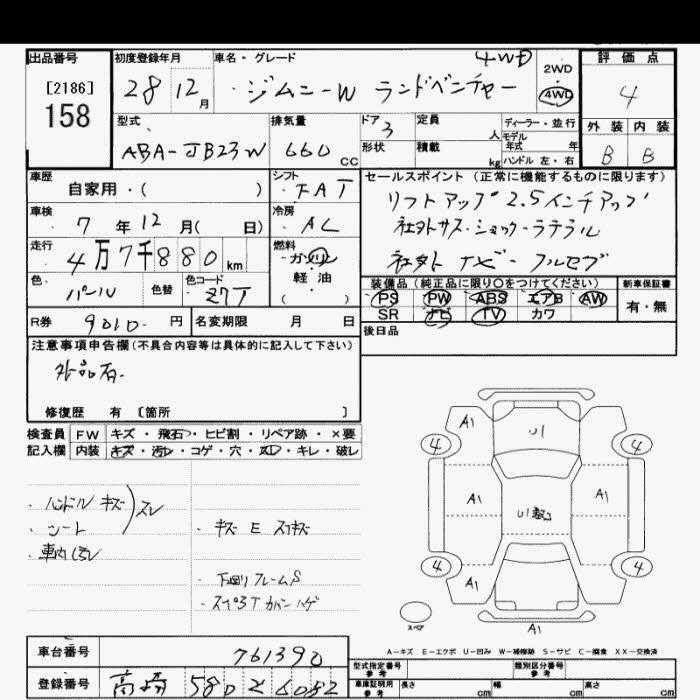 出品番号
[2186]
158
初度登録年月
28 12月
車名・グレード
4WD
ジムニーW ランドベンチャー
2WD
4WD
評価点
4
外装 内装
B B
型式
ABA-JB23W
排気量
660 CC
ドア 3
形状
定員 人
積載 kg
ディーラー・並行
モデル年式 年
ハンドル 左・右
車歴
自家用・( )
シフト
FAT
車検
7年12月( 日)
冷房
AC
走行
4万7千880km
燃料
ガソリン
軽油
( )
色
パール
色替
色コード
Z7T
R券
9010- 円
名変期限 月 日
セールスポイント(正常に機能するものに限ります)
リフトアップ 2.5インチアップ
社外サス・ショック・ラテラル
社外ナビ・フルセグ
装備品(純正品に限り○をつけてください)
PS PW ABS エアB AW
SR ナビ TV カワ
新車保証書
有・無
後日品
注意事項申告欄(不具合内容等は具体的に記入して下さい)
外品有.
修復歴 有 [箇所 ]
検査員
記入欄
FW キズ・飛石・ヒビ割・リペア跡・×要
内装 キズ・汚レ・コゲ・穴・スレ・キレ・破レ
・ハンドル キズ
スレ
・シート
・車内汚レ
・キズ E スリキズ
・下廻リ フレームS
・スペ3T カバーハゲ
A1
U1
4 4
A1 A1
U1
4 4
A1 A1
スペア
A1
A-キズ E-エクボ U-凹み W-補修跡 S-サビ C-腐食 XX-交換済
車台番号
761390
登録番号
高崎 580 そ 6052
型式指定番号
参考
類別区分番号
参考
車庫証明用
参考
長さ cm
幅 cm
高さ cm